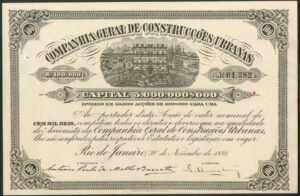 COMPANHIA GERAL DE CONSTRUCÇÕES URBANAS
Nº 01,382
CAPITAL 5.000:000$000
DIVIDIDO EM 50,000 ACÇÕES DE 100$000 CADA UMA
Ao portador desta Acção do valor nominal de
CEM MIL REIS, competem todos os direitos e deveres, na qualidade
de Accionista da Companhia Geral de Construcções Urbanas,
que são conferidos pelos respectivos Estatutos e legislação em vigor.
Rio de Janeiro, 30 de Novembro de 1890